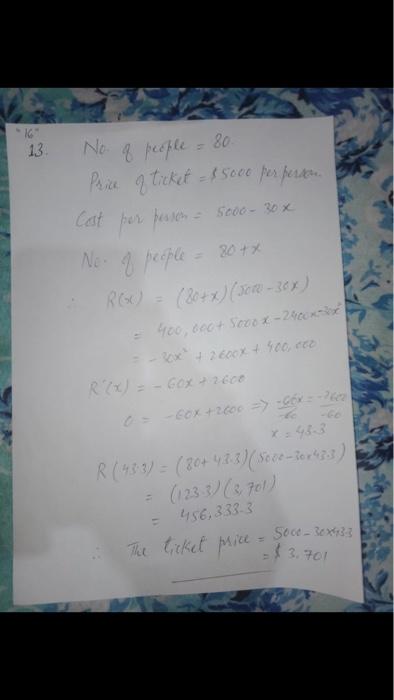 "16"
13. No. of people = 80.
Price of ticket = $5000 per person.
Cost per person = 5000 - 30x
No. of people = 80+x
∴ R(x) = (80+x)(5000-30x)
= 400,000+5000x-2400x-30x²
= -30x² + 2600x + 400,000
R'(x) = -60x + 2600
0 = -60x+2600 => -60x/-60 = -2600/-60
x = 43.3
R(43.3) = (80+43.3)(5000-30x43.3)
= (123.3)(3,701)
= 456,333.3
∴ The ticket price = 5000-30x43.3
= $3,701